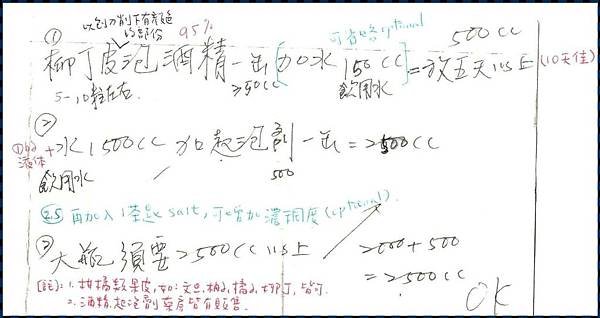 以刨刀削下有顏色的部份
95%
可省略 optional
500cc
① 柳丁皮泡酒精一缶 [加水 150cc] = 放五天以上 (10天佳)
5-10粒左右
350cc
飲用水
② ①的液体 + 水1500cc 加起泡劑一缶 = 2500cc
飲用水
500
②.5 再加入1茶匙 salt, 可增加濃稠度 (optional).
③ 大瓶須要2500cc以上
2000+500
=2500cc
OK
[註]: 1. 柑橘類果皮, 如: 文旦, 柚子, 橘子, 柳丁, 皆可.
2. 酒精, 起泡劑 藥房皆有販售.